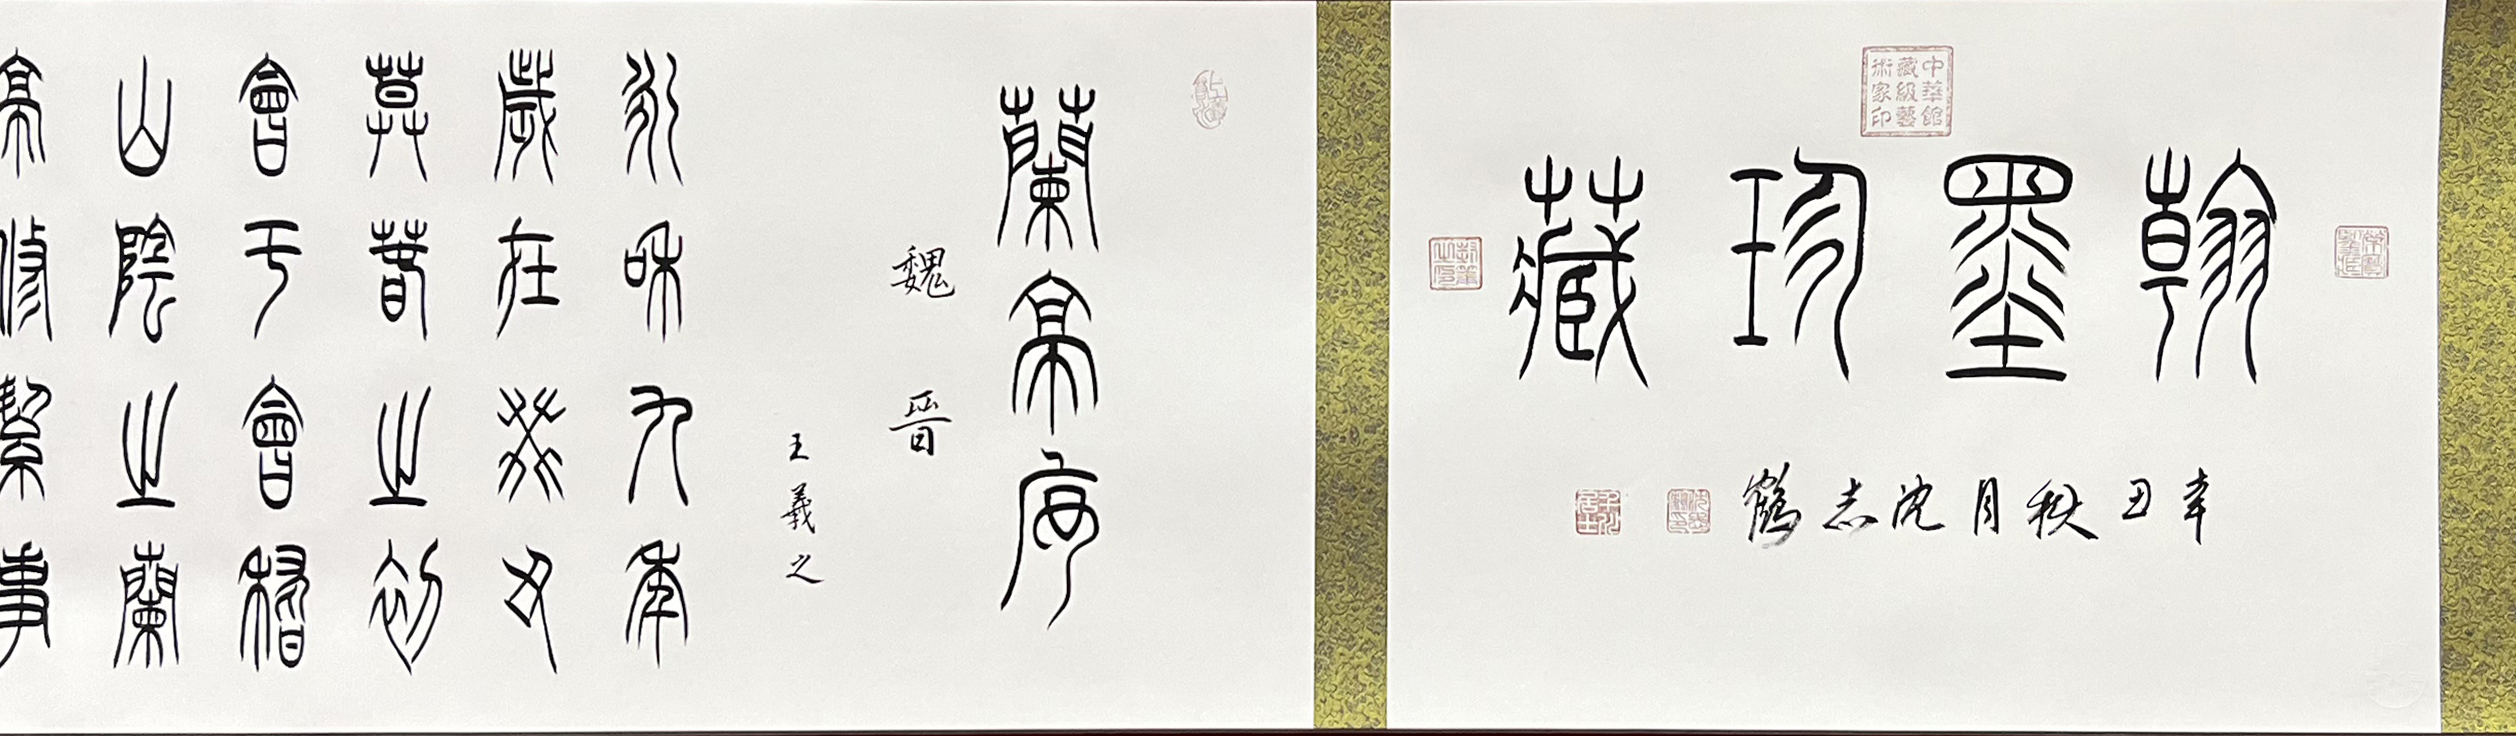 翰墨珍藏
辛丑秋月沈志鶴
中華館
藏級藝
術家印
蘭亭序
魏晉
王羲之
永和九年
歲在癸丑
莫春之初
會于會稽
山陰之蘭
亭修禊事